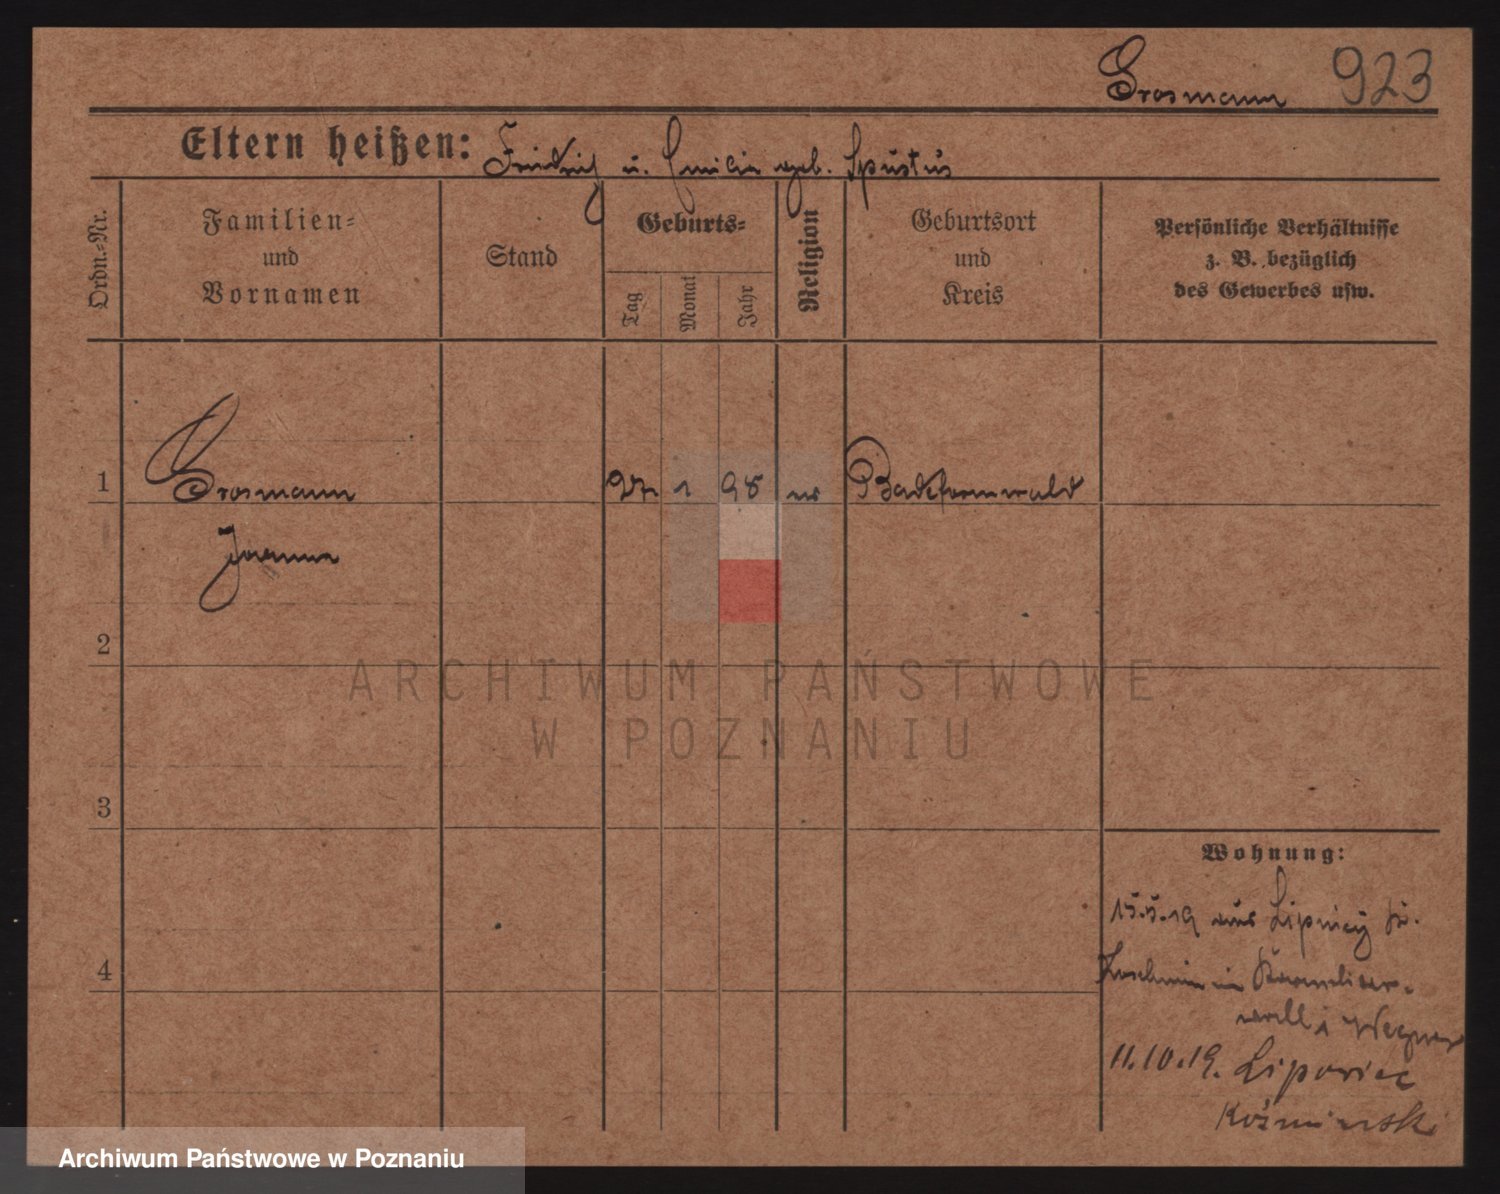 Grosmann 923
Eltern heißen: Friedrich u. Emilie geb.
Ordn.-Nr.
Familien-
und
Vornamen
Stand
Geburts-
Tag
Monat
Jahr
Religion
Geburtsort
und
Kreis
Persönliche Verhältnisse
z. B. bezüglich
des Gewerbes usw.
1
Grosmann
27. 1 98
Joanna
2
ARCHIWUM PAŃSTWOWE
W POZNANIU
3
Wohnung:
15.5.19 aus
4
Koschmin
wall 1 Wegner
11.10.19. Lipowiec
Koźminski
Archiwum Państwowe w Poznaniu